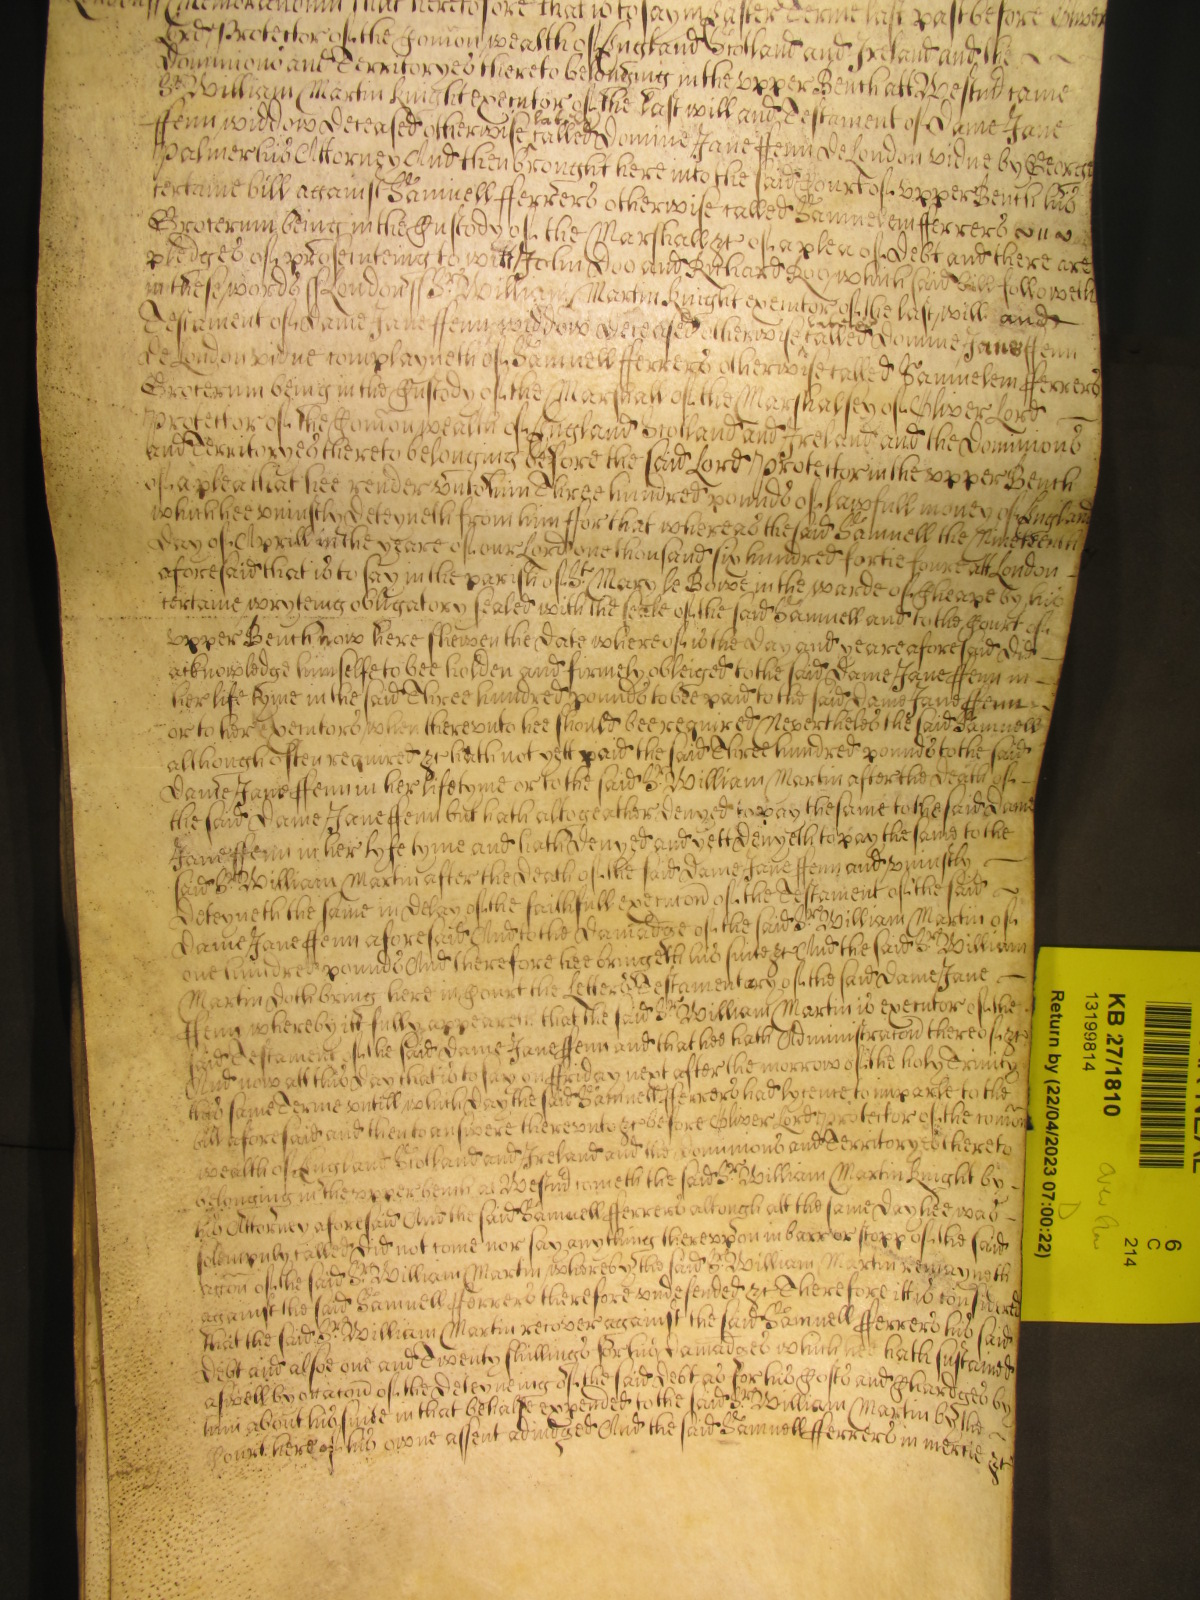 London ss Memorandum that heretofore that is to say in Easter Terme last past before Oliver
Lord Protector of the Comon wealth of England Scotland and Ireland and the
Dominions and Territoryes thereto belonging in the upper Bench att Westm̃ came
Sr William Martin Knight executor of the last will and Testament of Dame Jane
ffenn widdow deceased otherwise called Domine Jane ffenn de London vidue by George
Palmer his Attorney And then brought here into the said Court of upper Bench his
certaine bill against Samuell fferrers otherwise called Samuelem fferrers
Groterum being in the Custody of the Marshall &c of a plea of Debt and there are
pledges of prosecuteing to witt John Doo and Richard Roo which said bill followeth
in these words ss London ss Sr William Martin Knight executor of the last will and
Testament of Dame Jane ffenn widdow deceased otherwise called Domine Jane ffenn
de London vidue complayneth of Samuell fferrers otherwise called Samuelem fferrers
Groterum being in the Custody of the Marshall of the Marshalsey of Oliver Lord
Protector of the Comon wealth of England Scotland and Ireland and the Dominions
and Territoryes thereto belonging before the said Lord Protector in the upper Bench
of a plea that hee render unto him Three hundred pounds of lawfull money of England
which hee uniustly deteyneth from him ffor that whereas the said Samuell the Nineteenth
day of Aprill in the yeare of our Lord one thousand six hundred fortie foure att London
aforesaid that is to say in the parish of St Mary le Bowe in the warde of Cheape by his
certaine wryteing obligatory sealed with the seale of the said Samuell and to the Court of
upper Bench now here shewen the date whereof is the day and yeare aforesaid did
acknowledge himselfe to bee holden and firmely obleiged to the said Dame Jane ffenn in
her life tyme in the said Three hundred pounds to bee paid to the said Dame Jane ffenn
or to her executors when thereunto hee should bee required Neverthelesse the said Samuell
although often required &c hath not yett paid the said Three hundred pounds to the said
Dame Jane ffenn in her life tyme or to the said Sr William Martin after the death of
the said Dame Jane ffenn but hath altogeather denyed to pay the same to the said Dame
Jane ffenn in her lyfe tyme and hath denyed and yett denyeth to pay the same to the
said Sr William Martin after the death of the said Dame Jane ffenn and uniustly
deteyneth the same in delay of the faithfull execucõn of the Testament of the said
Dame Jane ffenn aforesaid And to the damadge of the said Sr William Martin of
one hundred pounds And therefore hee bringeth his suite &c And the said Sr William
Martin doth bring here in Court the Letters Testamentary of the said Dame Jane
ffenn whereby itt fully appeareth that the said Sr William Martin is executor of the
said Testament of the said Dame Jane ffenn and that hee hath Administracõn thereof &c
And now att this day that is to say on ffriday next after the morrow of the holy Trinity
this same Terme untill which day the said Samuell fferrers had lycence to imparle to the
bill aforesaid and then to answere thereunto &c before Oliver Lord Protector of the comon
wealth of England Scotland and Ireland and the Dominions and Territoryes thereto
belonging in the upper bench at Westm̃ cometh the said Sr William Martin Knight by
his Attorney aforesaid And the said Samuell fferrers althogh att the same day hee was
solempnly called did not come nor say anything thereupon in barr or stopp of the said
accõn of the said Sr William Martin whereby the said Sr William Martin remayneth
against the said Samuell fferrers therefore undefended &c Therefore itt is considered
that the said Sr William Martin recover against the said Samuell fferrers his said
debt and alsoe one and Twenty shillings for his damadges which hee hath susteined
aswell by occacõn of the deteyneing of the said debt as for his Costs and Chardges by
him about his suite in that behalfe expended to the said Sr William Martin by the
Court here of his owne assent adiudged And the said Samuell fferrers in mercie &c
KB 27/1810
13199814
Return by (22/04/2023 07:00:22)
D
6
C
214